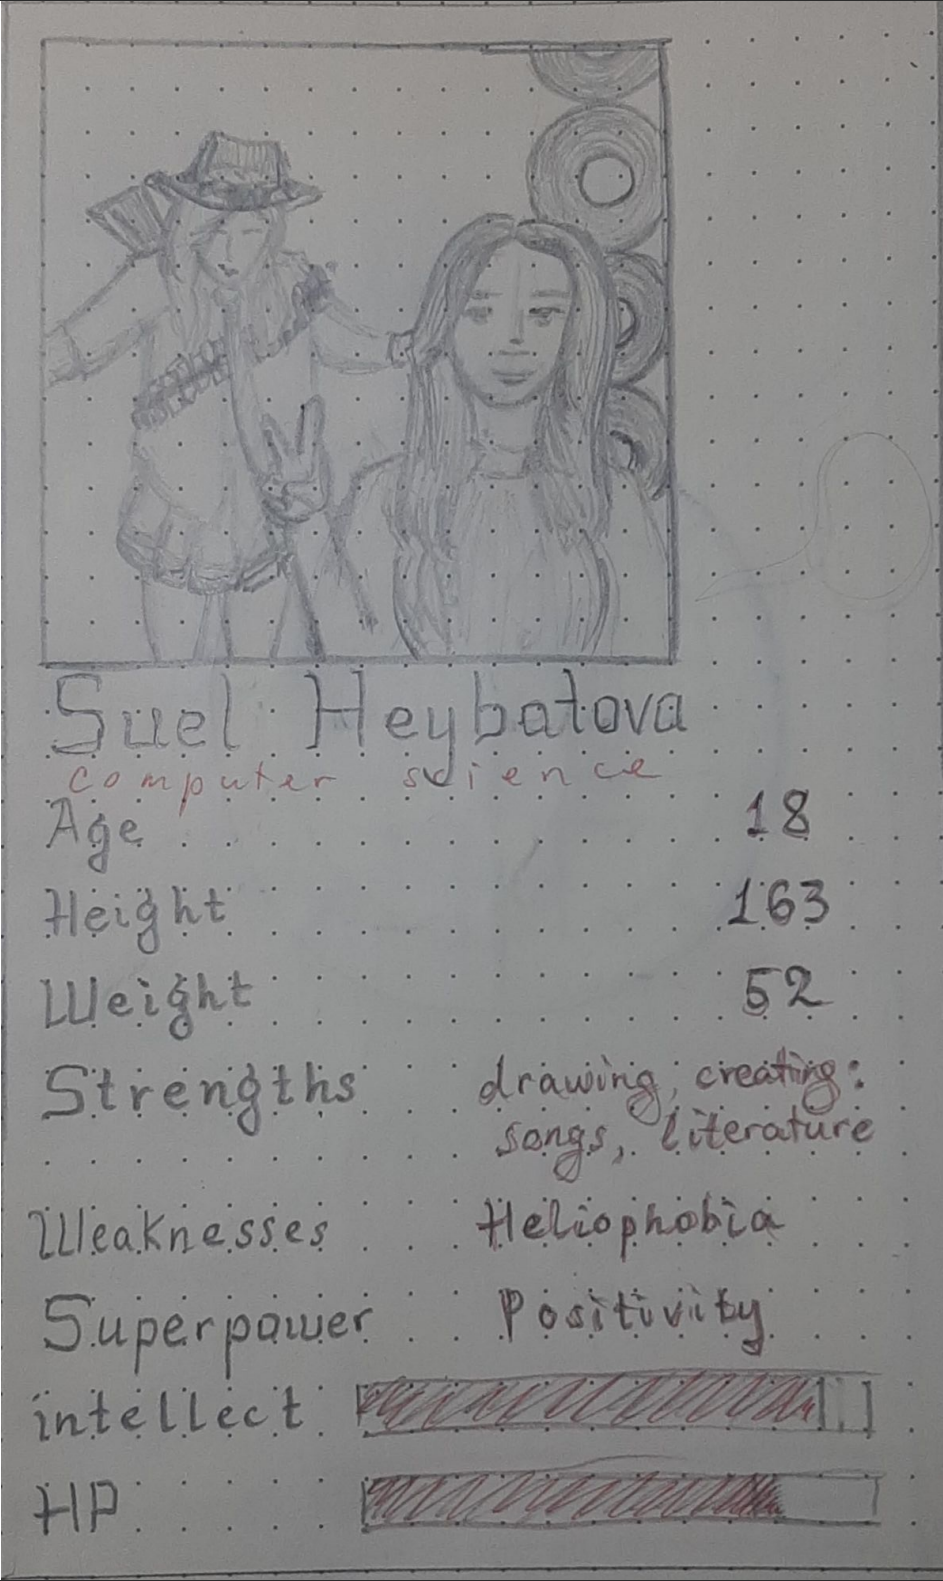 Suel Heybatova
computer science
Age 18
Height 163
Weight 52
Strengths drawing, creating:
songs, literature
Weaknesses Heliophobia
Superpower Positivity
intellect
HP